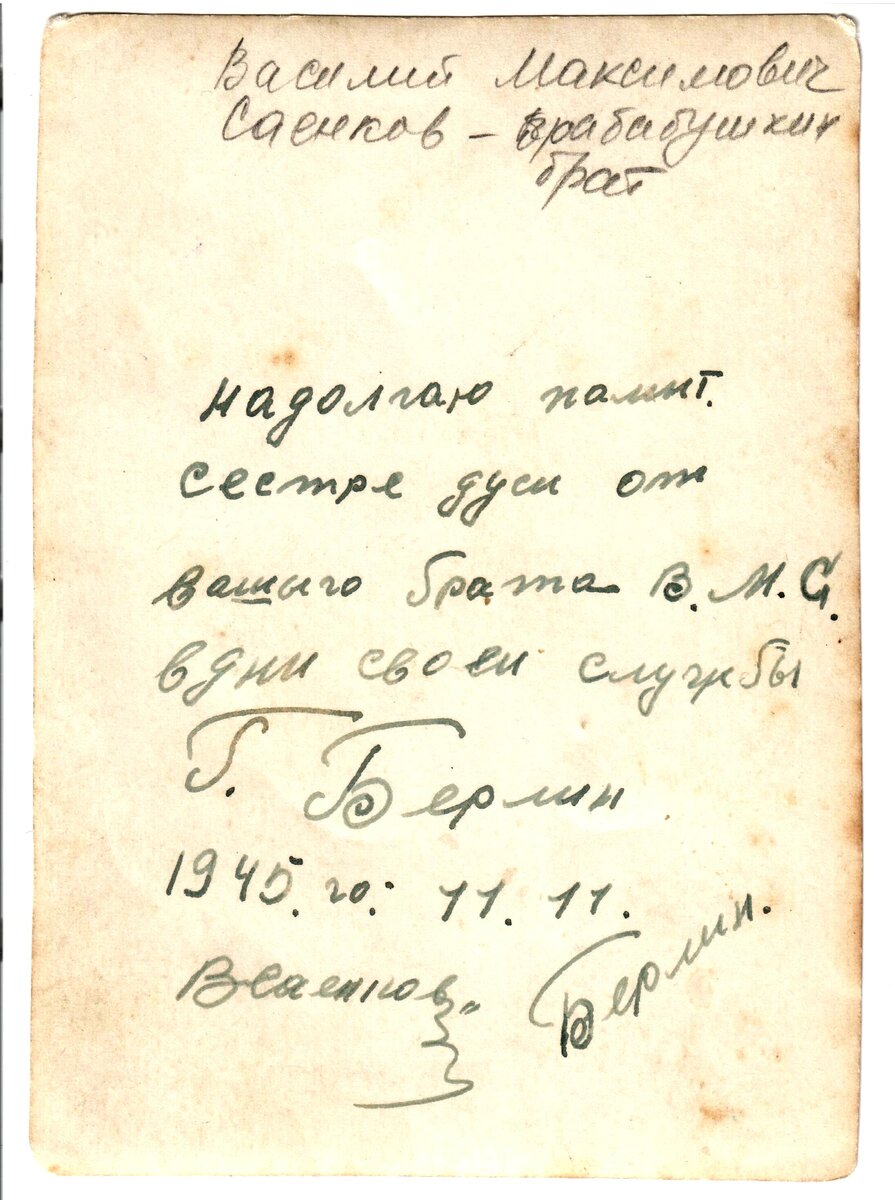 Василий Максимович
Саенков – прабабушкин
брат
надолгаю памит.
сестре дуси от
вашыго брата В.М.С.
вдни своеи службы
Г. Берлин
1945.го: 11.11.
ВСаенков
Берлин.